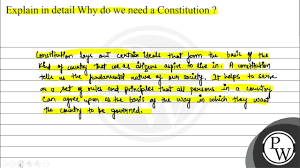 Explain in detail Why do we need a Constitution ?
Constitution lays out certain ideals that form the basis of the
kind of country that we as citizens aspire to live in. A constitution
tells us the fundamental nature of our society. It helps to serve
as a set of rules and principles that all persons in a country
can agree upon as the basis of the way in which they want
the country to be governed.
P
W